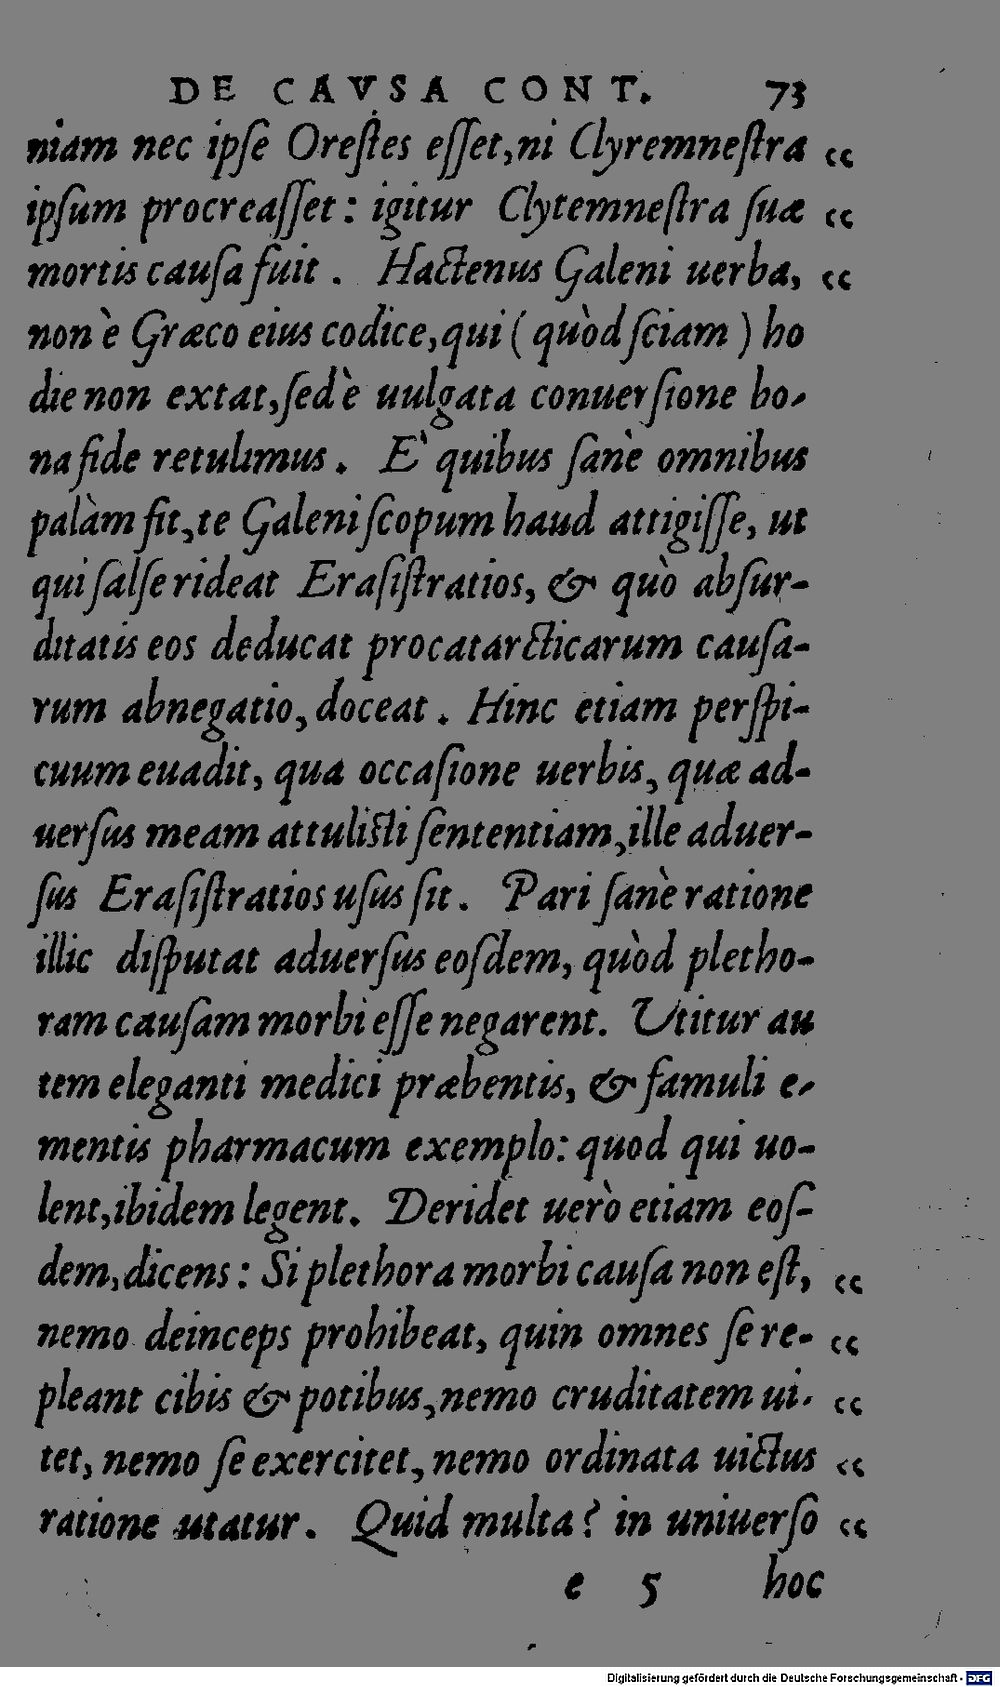 DE CAVSA CONT. 73
niam nec ipſe Oreſtes eſſet, ni Clyremneſtra “
ipſum procreaſſet: igitur Clytemneſtra ſuæ “
mortis cauſa fuit. Hactenus Galeni uerba, “
non è Græco eius codice, qui (quòd ſciam) ho
die non extat, ſed è uulgata conuerſione bo-
na fide retulimus. E` quibus ſanè omnibus
palàm fit, te Galeni ſcopum haud attigiſſe, ut
qui ſalſe rideat Eraſiſtratios, & quò abſur-
ditatis eos deducat procatarcticarum cauſa-
rum abnegatio, doceat. Hinc etiam perſpi-
cuum euadit, qua occaſione uerbis, quæ ad-
uerſus meam attuliſti ſententiam, ille aduer-
ſus Eraſiſtratios uſus ſit. Pari ſanè ratione
illic diſputat aduerſus eoſdem, quòd pletho-
ram cauſam morbi eſſe negarent. Utitur au
tem eleganti medici præbentis, & famuli e-
mentis pharmacum exemplo: quod qui uo-
lent, ibidem legent. Deridet uerò etiam eoſ-
dem, dicens: Si plethora morbi cauſa non eſt, “
nemo deinceps prohibeat, quin omnes ſe re- “
pleant cibis & potibus, nemo cruditatem ui- “
tet, nemo ſe exercitet, nemo ordinata uictus “
ratione utatur. Quid multa? in uniuerſo “
e 5 hoc
Digitalisierung gefördert durch die Deutsche Forschungsgemeinschaft - DFG